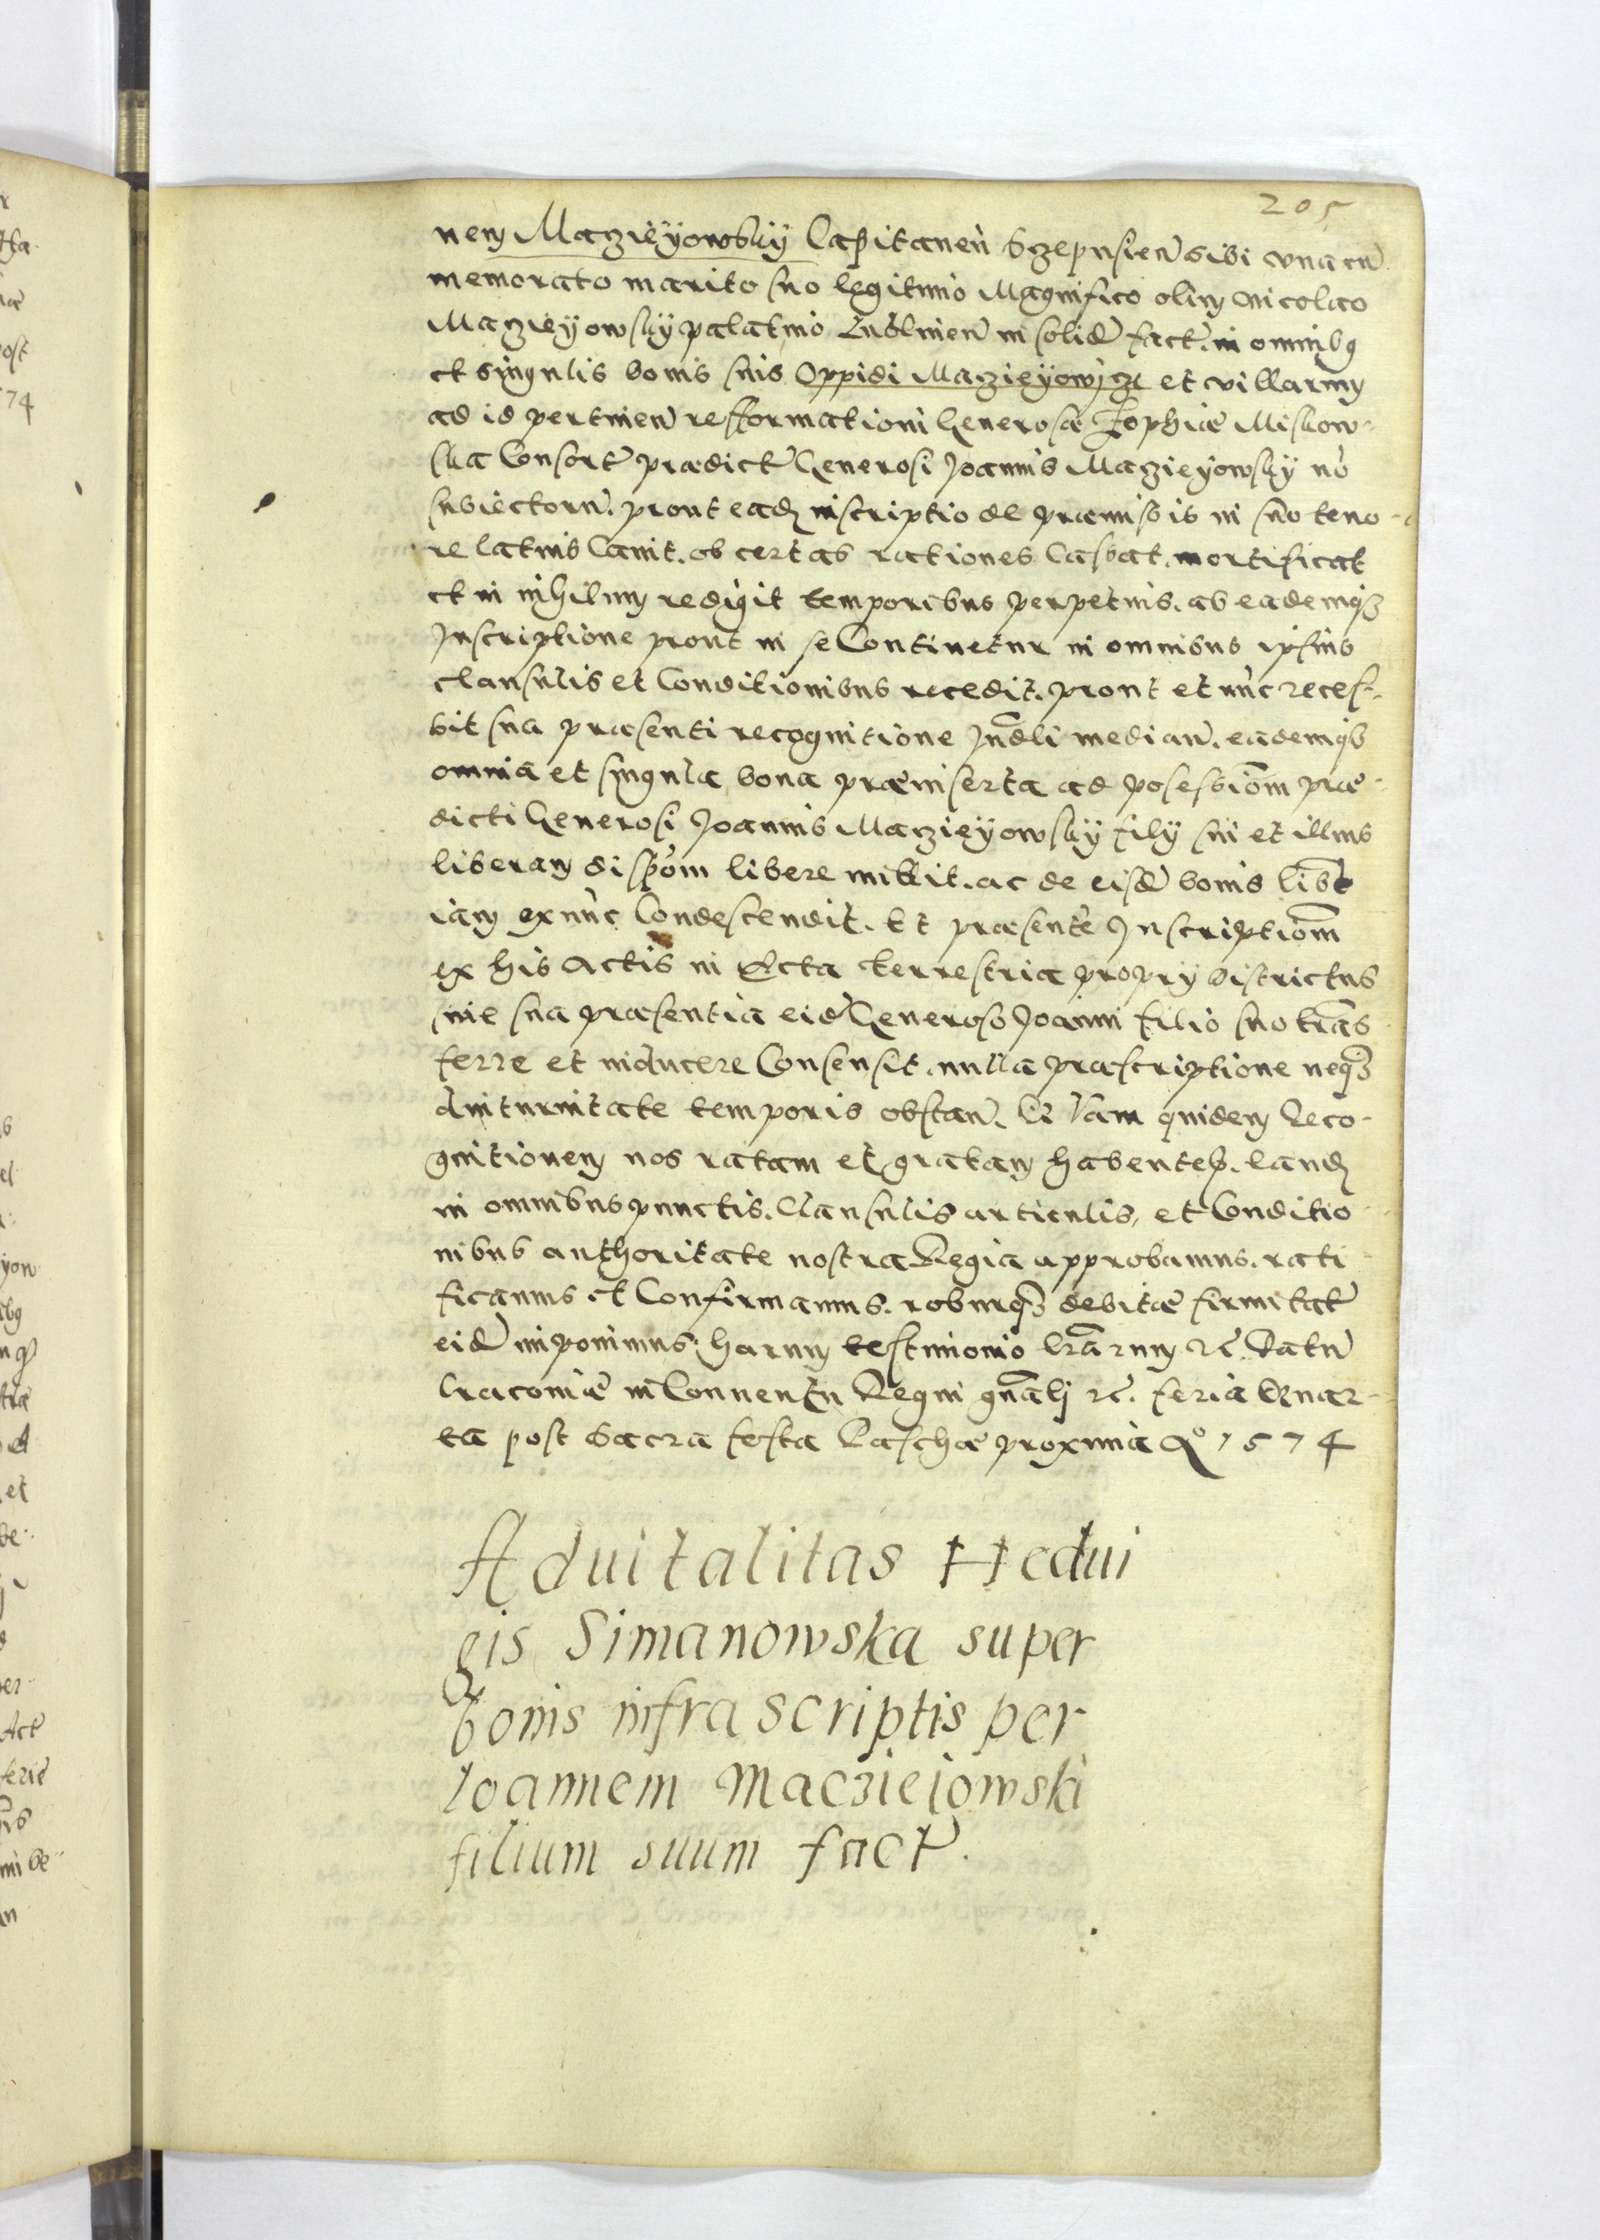 205
nem Maczieÿowskÿ Capitaneũ Szepusieñ sibi vnacũ
memorato marito suo legitimo Magnifico olim Nicolao
Maczieÿowskÿ palatino Lublineñ in solidũ fact̃. in omnibq
et singulis bonis suis Oppidi Maczieÿowicze et villarum
ad id pertineñ refformationi Generosæ Zophiæ Miskow-
ska Consort̃ prædict̃ Generosi Joannis Maczieÿowskÿ nõ
subiectorũ. prout eadem inscriptio de præmissis in suo teno-
re latius Canit. ob certas rationes Cassat. mortificat
et in nihilum redigit temporibus perpetuis. ab eademqȝ
Inscriptione prout in se Continetur in omnibus ipsius
clausulis et Conditionibus recedit. prout et nũc recess-
it sua præsenti recognitione Jnd̃li median̄. eademqȝ
omnia et singula bona præinserta ad posessiõm præ-
dicti Generosi Joannis Maczieÿowskÿ filÿ sui et illius
liberam dispõm libere mittit. ac de eisdẽ bonis
iam ex nũc Condescendit. Et præsentẽ Inscriptiõm
ex his Actis in Acta terrestria proprÿ districtus
sine sua præsentia eidẽ Generoso Joanni filio suo trãs-
ferre et inducere Consensit. nulla præscriptione neqȝ
diuturnitate temporis obstan̄. Q Vam quidem Reco-
gnitionem nos ratam et gratam habentes. eandem
in omnibus punctis. Clausulis articulis, et Conditio-
nibus authoritate nostra Regia approbamus. rati-
ficamus et Confirmamus. roburqȝ debitæ firmitat̃
eidẽ imponimus: harum testimonio lr̃arum rc̃. Datũ
Cracoviæ in Conuentu Regni gn̄alj rc̃. feria Quar-
ta post Sacra festa Paschæ proxima Aº 1574
Aduitalitas Hedui
gis Simanowska super
bonis infra scriptis per
Ioannem Macziejowski
filium suum fact̃.